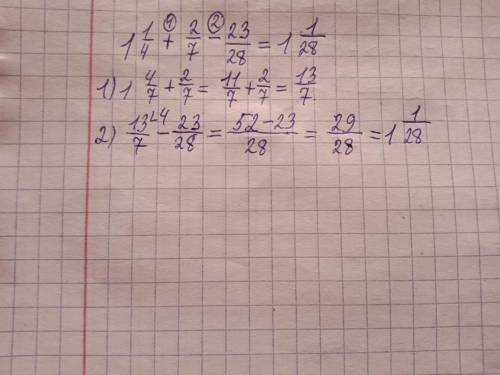 1 1/4 +① 2/7 −② 23/28 = 1 1/28
1) 1 4/7 + 2/7 = 11/7 + 2/7 = 13/7.
2) 13/7 ⌞4 − 23/28 = 52−23/28 = 29/28 = 1 1/28